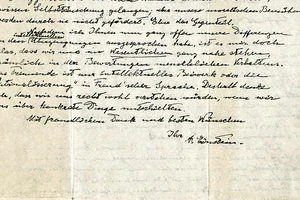 wissen Selbsttäuschung gelangen; aber unsere moralischen Bemüh
werden durch sie nicht gefördert. Eher das Gegenteil.
Nachdem ich Ihnen nun ganz offen unsere Differenzen
in den intellektuellen Überzeugungen ausgesprochen habe, ist es mir doch
klar, dass wir uns im Wesentlichen ganz nahe stehen,
nämlich in den Bewertungen menschlichen Verhaltens.
Trennende ist nur intellektuelles Beiwerk oder die
"Rationalisierung" in Freud'scher Sprache. Deshalb denke
dass wir uns recht wohl verstehen würden, wenn wir
uns über konkrete Dinge unterhielten.
Mit freundlichem Dank und besten Wünschen
Ihr A. Einstein.